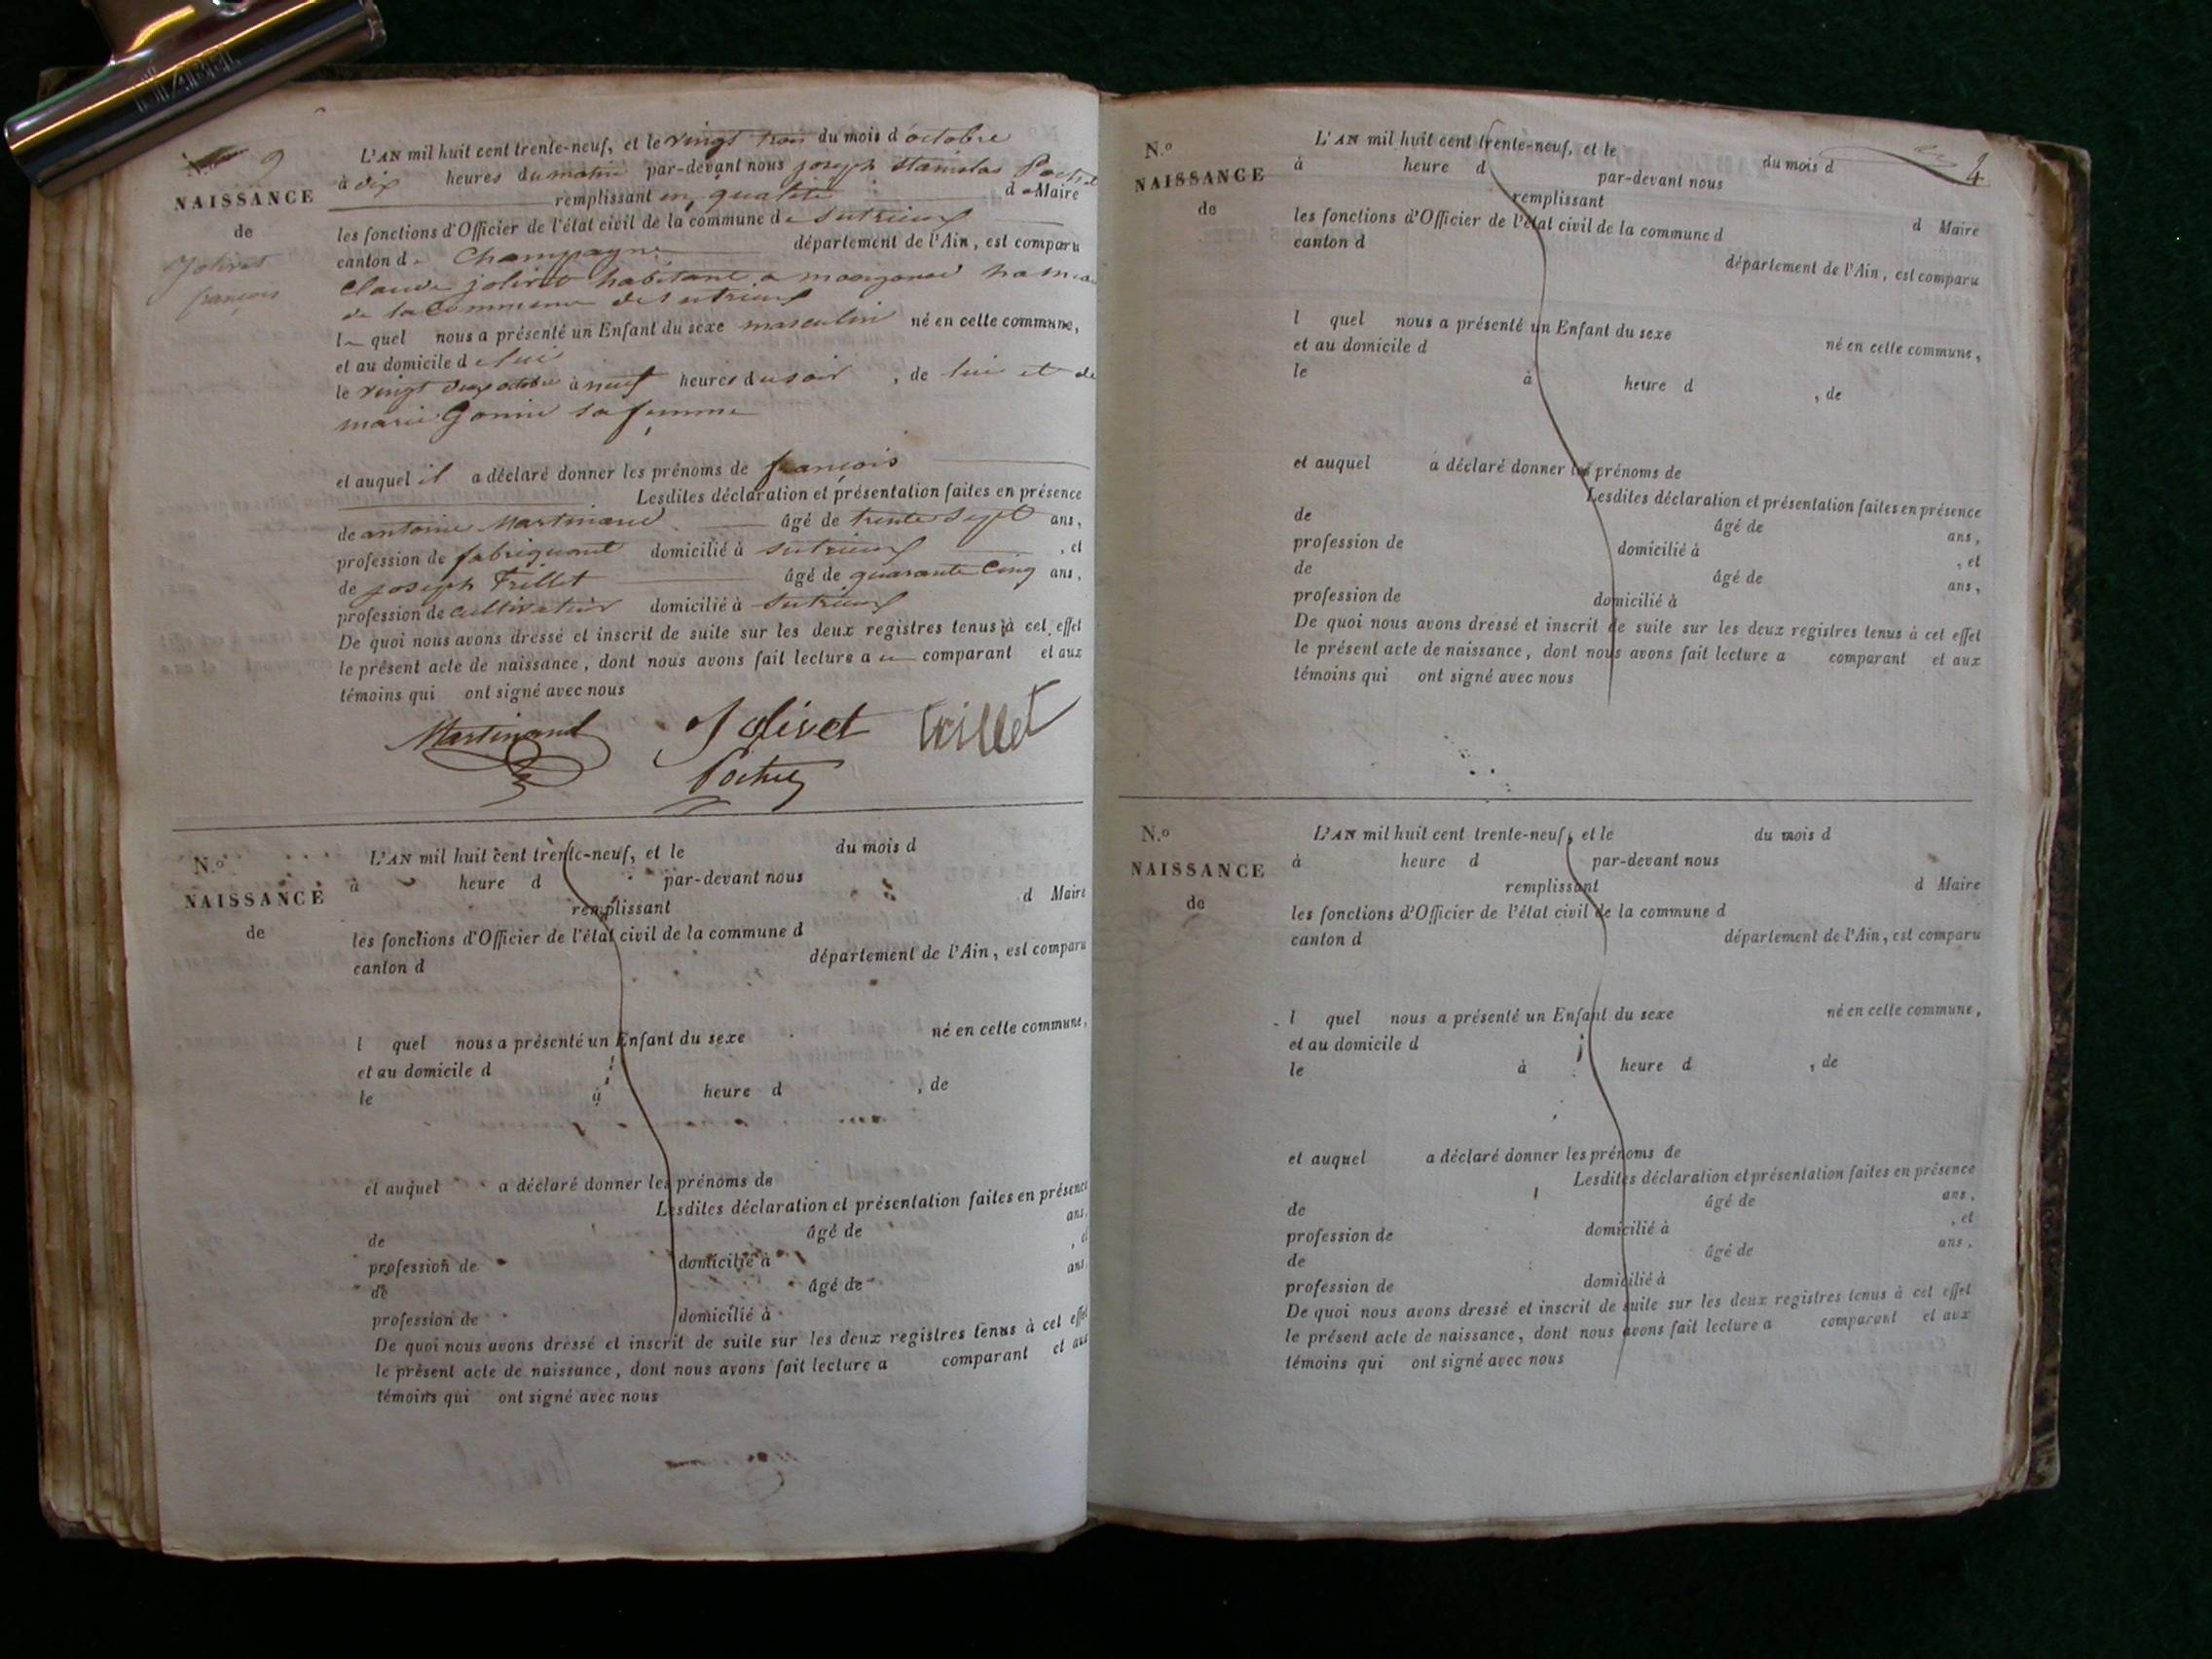 N.o 9
NAISSANCE
de
Jolivet
françois
L'AN mil huit cent trente-neuf, et le vingt trois du mois d octobre
à dix heures du matin par-devant nous joseph stanislas
remplissant en qualité de Maire
les fonctions d'Officier de l'état civil de la commune de Sutrieux
canton de Champagne département de l'Ain, est comparu
Claude jolivet habitant a hameau
de la Commune de Sutrieux
le quel nous a présenté un Enfant du sexe masculin né en cette commune,
et au domicile de lui
le vingt deux octobre à neuf heures du soir, de lui et de
marie Gonin sa femme
et auquel il a déclaré donner les prénoms de françois
Lesdites déclaration et présentation faites en présence
de antoine Martinand âgé de trente Sept ans,
profession de fabriquant domicilié à Sutrieux, et
de joseph Trillet âgé de quarante Cinq ans,
profession de cultivateur domicilié à Sutrieux
De quoi nous avons dressé et inscrit de suite sur les deux registres tenus à cet effet
le présent acte de naissance, dont nous avons fait lecture au comparant et aux
témoins qui ont signé avec nous
Martinand Jolivet trillet
N.o
NAISSANCE
de
L'AN mil huit cent trente-neuf, et le du mois d
à heure d par-devant nous
remplissant d Maire
les fonctions d'Officier de l'état civil de la commune d
canton d département de l'Ain, est comparu
l quel nous a présenté un Enfant du sexe né en cette commune,
et au domicile d
le à heure d , de
et auquel a déclaré donner les prénoms de
Lesdites déclaration et présentation faites en présence
de âgé de ans,
profession de domicilié à , et
de âgé de ans
profession de domicilié à
De quoi nous avons dressé et inscrit de suite sur les deux registres tenus à cet effet
le présent acte de naissance, dont nous avons fait lecture a comparant et aux
témoins qui ont signé avec nous
N.o
NAISSANCE
de
L'AN mil huit cent trente-neuf, et le du mois d
à heure d par-devant nous
remplissant d Maire
les fonctions d'Officier de l'état civil de la commune d
canton d département de l'Ain, est comparu
l quel nous a présenté un Enfant du sexe né en cette commune,
et au domicile d
le à heure d , de
et auquel a déclaré donner les prénoms de
Lesdites déclaration et présentation faites en présence
de âgé de ans,
profession de domicilié à , et
de âgé de ans,
profession de domicilié à
De quoi nous avons dressé et inscrit de suite sur les deux registres tenus à cet effet
le présent acte de naissance, dont nous avons fait lecture a comparant et aux
témoins qui ont signé avec nous
N.o
NAISSANCE
de
L'AN mil huit cent trente-neuf, et le du mois d
à heure d par-devant nous
remplissant d Maire
les fonctions d'Officier de l'état civil de la commune d
canton d département de l'Ain, est comparu
l quel nous a présenté un Enfant du sexe né en cette commune,
et au domicile d
le à heure d , de
et auquel a déclaré donner les prénoms de
Lesdites déclaration et présentation faites en présence
de âgé de ans,
profession de domicilié à , et
de âgé de ans,
profession de domicilié à
De quoi nous avons dressé et inscrit de suite sur les deux registres tenus à cet effet
le présent acte de naissance, dont nous avons fait lecture a comparant et aux
témoins qui ont signé avec nous